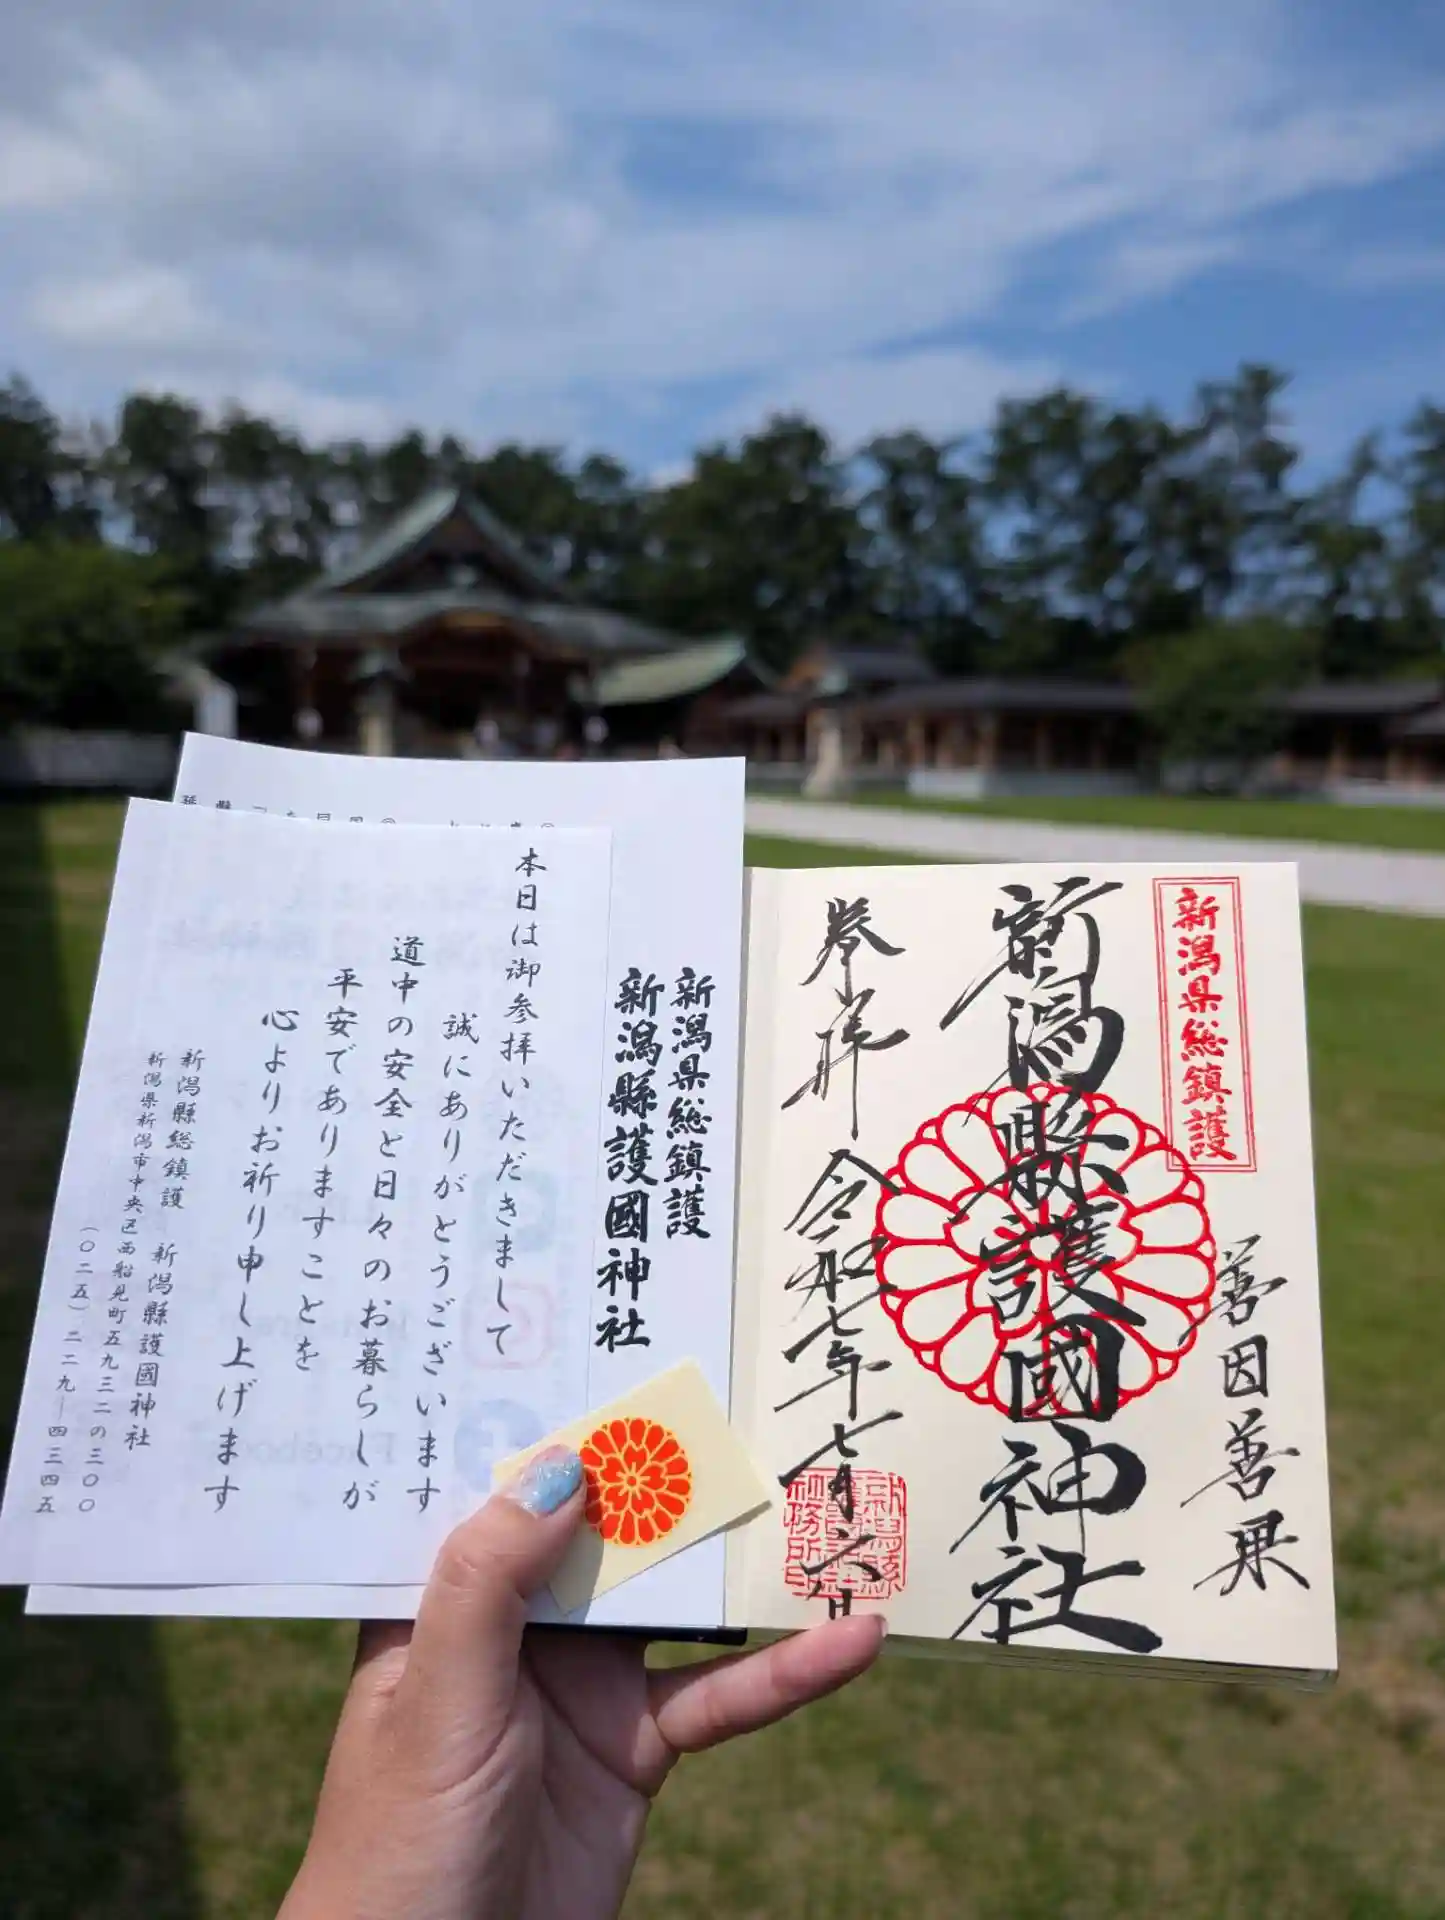 新潟県総鎮護
善因善果
新潟縣護國神社
奉拝
令和七年七月六日
新潟県総鎮護
新潟縣護國神社
本日は御参拝いただきまして
誠にありがとうございます
道中の安全と日々のお暮らしが
平安でありますことを
心よりお祈り申し上げます
新潟縣総鎮護 新潟縣護國神社
新潟県新潟市中央区西船見町五九三二の三〇〇
(〇二五)二二九ー四三四五